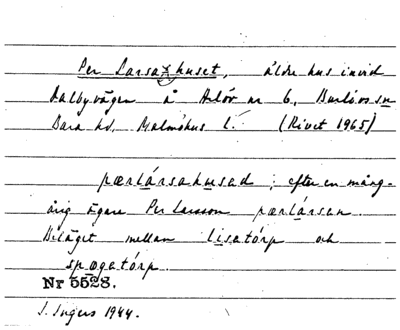 Per Larsa huset, äldre hus invid
Dalbyvägen å Arlöv nr 6, Burlövs sn
Bara hd, Malmöhus l. (Rivet 1965)
pærlársahusad; efter en mång-
årig ägare Per Larsson pærlársan.
Beläget mellan lisatórp och
spøgatórp.
Nr 5528.
I. Ingers 1944.